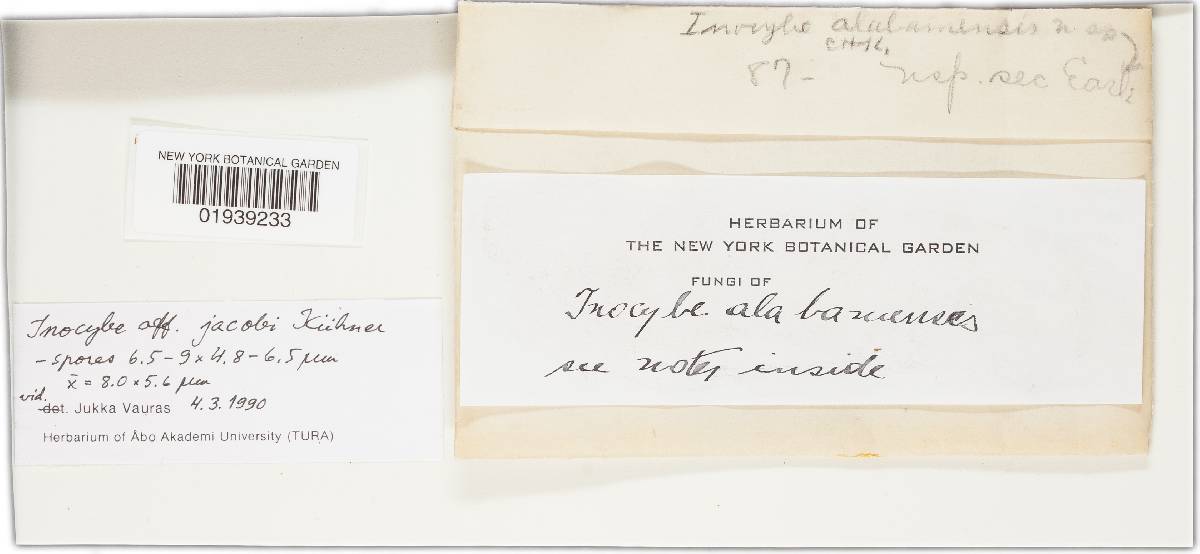 Inocybe alabamensis n sp
87- nsp. sec Earle
NEW YORK BOTANICAL GARDEN
01939233
HERBARIUM OF
THE NEW YORK BOTANICAL GARDEN
FUNGI OF
Inocybe alabamensis
see notes inside
Inocybe aff. jacobi Kühner
- spores 6.5-9 x 4.8-6.5 µm
x̄ = 8.0 x 5.6 µm
vid.
det. Jukka Vauras 4.3.1990
Herbarium of Åbo Akademi University (TURA)